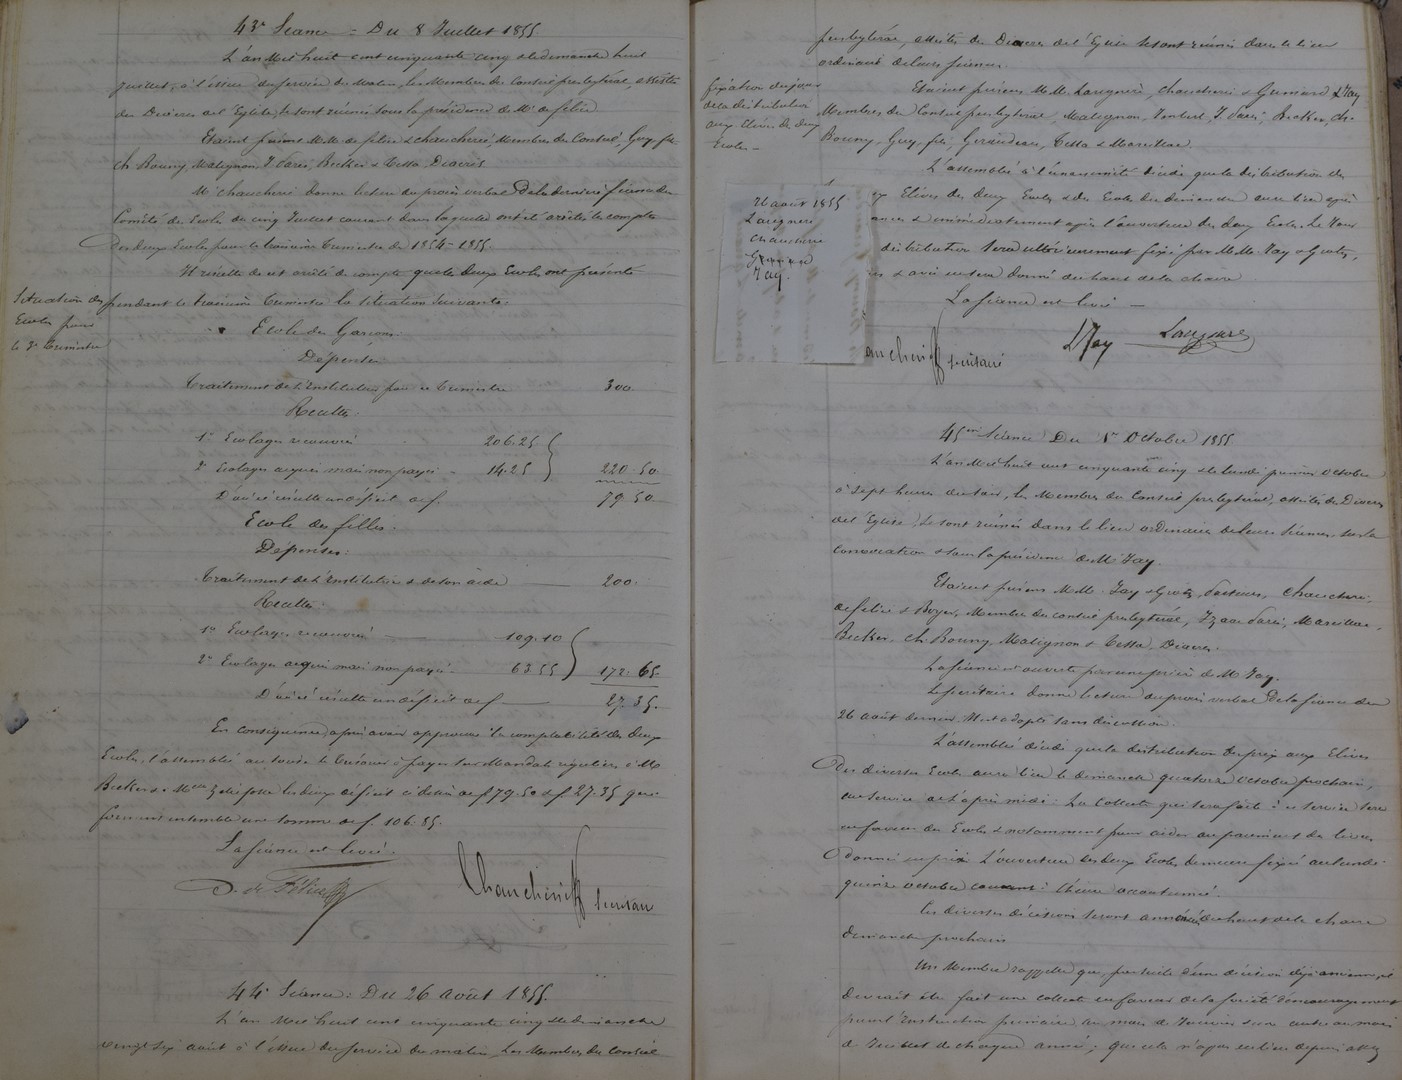 43e Séance = Du 8 Juillet 1855
L'an Mil huit cent cinquante cinq & le dimanche huit
juillet, à l'issue du service du Matin, les Membres du Conseil presbytéral, assistés
des Diacres de l'Eglise, se sont réunis sous la présidence de Mr de félice.
Etaient présens M.M. de félice & chaucherie, Membres du Conseil, Guy, fils
Ch. Bouny, Matignon, I. Paris, Becker & Cetta, Diacres.
Mr chaucherie donne lecture du procès verbal de la dernière séance du
Comité des Ecoles du cinq Juillet courant dans laquelle ont été arrêtés les comptes
des deux Ecoles pour le troisième trimestre de 1854=1855.
Il résulte de cet arrêté de compte que les deux Ecoles ont présenté
Situation des
Ecoles pour
le 3e trimestre
pendant le troisième trimestre la situation suivante:
Ecole des Garçons.
Dépenses
Traitement de l'Instituteur pour ce trimestre 300
Recettes:
1° Ecolages recouvrés 206.25
2° Ecolages acquis mais non payés 14.25 220.50
D'où il résulte un déficit de f 79.50
Ecole des filles.
Dépenses:
Traitement de l'Institutrice & de son aide 200.
Recettes:
1° Ecolages recouvrés 109.10
2° Ecolages acquis mais non payés. 63.55 172.65
D'où il résulte un déficit de f 27.35.
En conséquence, après avoir approuvé la comptabilité des deux
Ecoles, l'assemblée autorise le trésorier à payer sur Mandats réguliers, à Mr
Becker & Melle les deux déficits ci dessus de f 79.50 & f. 27.35 qui
forment ensemble une somme de f. 106.85.
La séance est levée.
D. de Félice
Chaucherie secrétaire
44e Séance: Du 26 Août 1855.
L'an Mil huit cent cinquante cinq & le dimanche
vingt six août à l'issue du service du matin, Les Membres du Conseil
presbytéral, assistés des Diacres de l'Eglise se sont réunis dans le lieu
ordinaire de leurs séances.
fixation du jour
de la distribution
aux Elèves des deux
Ecoles
Etaient présens M.M. Laugueré, chaucherie & L. Jay
Membres du Conseil presbytéral, Matignon, I. Paris, Becker, Ch.
Bouny, Guy, fils, Giraudeau, Cetta & Marcillac.
L'assemblée à l'unanimité décide que la distribution des
x Elèves des deux Ecoles & des Ecoles du dimanche aura lieu après
& immédiatement après l'ouverture des deux Ecoles. Le
distribution sera ultérieurement fixé par M.M. Jay & Grotz,
& avis en sera donné du haut de la chaire.
26 août 1855
Laugueré
chaucherie
Jay.
La séance est levée
L Jay Laugueré
aucherie secrétaire
45eme Séance Du 1er Octobre 1855.
L'an Mil huit cent cinquante cinq & le lundi premier octobre
à sept heures du soir, les Membres du Conseil presbytéral, assistés des Diacres
de l'Eglise, se sont réunis dans le lieu ordinaire de leurs séances, sur la
convocation & sous la présidence de Mr Jay.
Etaient présens M.M. Jay & Grotz, Pasteurs, Chaucherie,
de félice & Boyer, Membres du conseil presbytéral, Izaac Paris, Marcillac,
Becker, Ch. Bouny, Matignon & Cetta, Diacres.
La séance est ouverte par une prière de Mr Jay.
Le secrétaire donne lecture du procès verbal de la séance du
26 août dernier. Il est adopté sans discussion.
L'assemblée décide que la distribution des prix aux Elèves
des diverses Ecoles aura lieu le dimanche quatorze octobre prochain,
au service de l'après midi. La Collecte qui sera faite à ce service sera
en faveur des Ecoles & notamment pour aider au paiement des livres
donnés en prix. L'ouverture des deux Ecoles demeure fixée au lundi
quinze octobre courant à l'heure accoutumée.
Ces diverses décisions seront annoncées du haut de la chaire
dimanche prochain
Un Membre rappelle que, par suite d'une décision déjà ancienne, il
devrait être fait une collecte en faveur de la société d'encouragement
pour l'Instruction primaire au mois de Janvier & une autre au mois
de Juillet de chaque année; que cela n'a pas eu lieu depuis assez